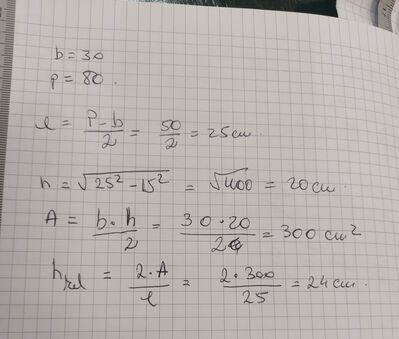 b = 30
p = 80.
l = P-b/2 = 50/2 = 25cm.
h = √25²-15² = √400 = 20cm.
A = b.h/2 = 30.20/2 = 300 cm²
h rel = 2.A/l = 2.300/25 = 24cm.